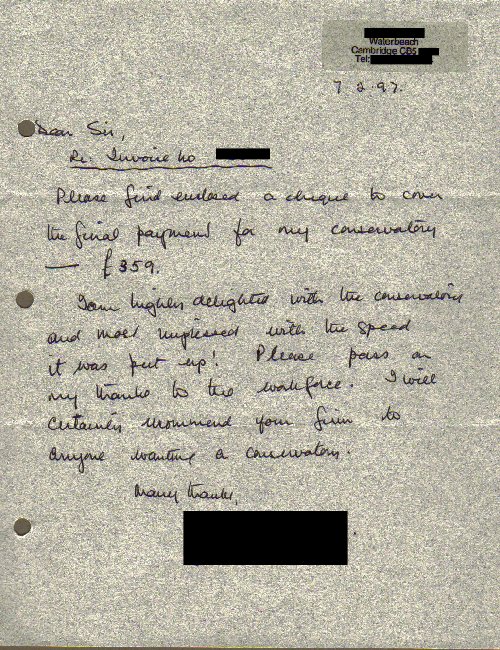 Waterbeach
Cambridge CB5
Tel:
7.2.97.
Dear Sir,
Re. Invoice No
Please find enclosed a cheque to cover
the final payment for my conservatory
— £359.
I am highly delighted with the conservatory
and most impressed with the speed
it was put up! Please pass on
my thanks to the workforce. I will
certainly recommend your firm to
anyone wanting a conservatory.
Many thanks,